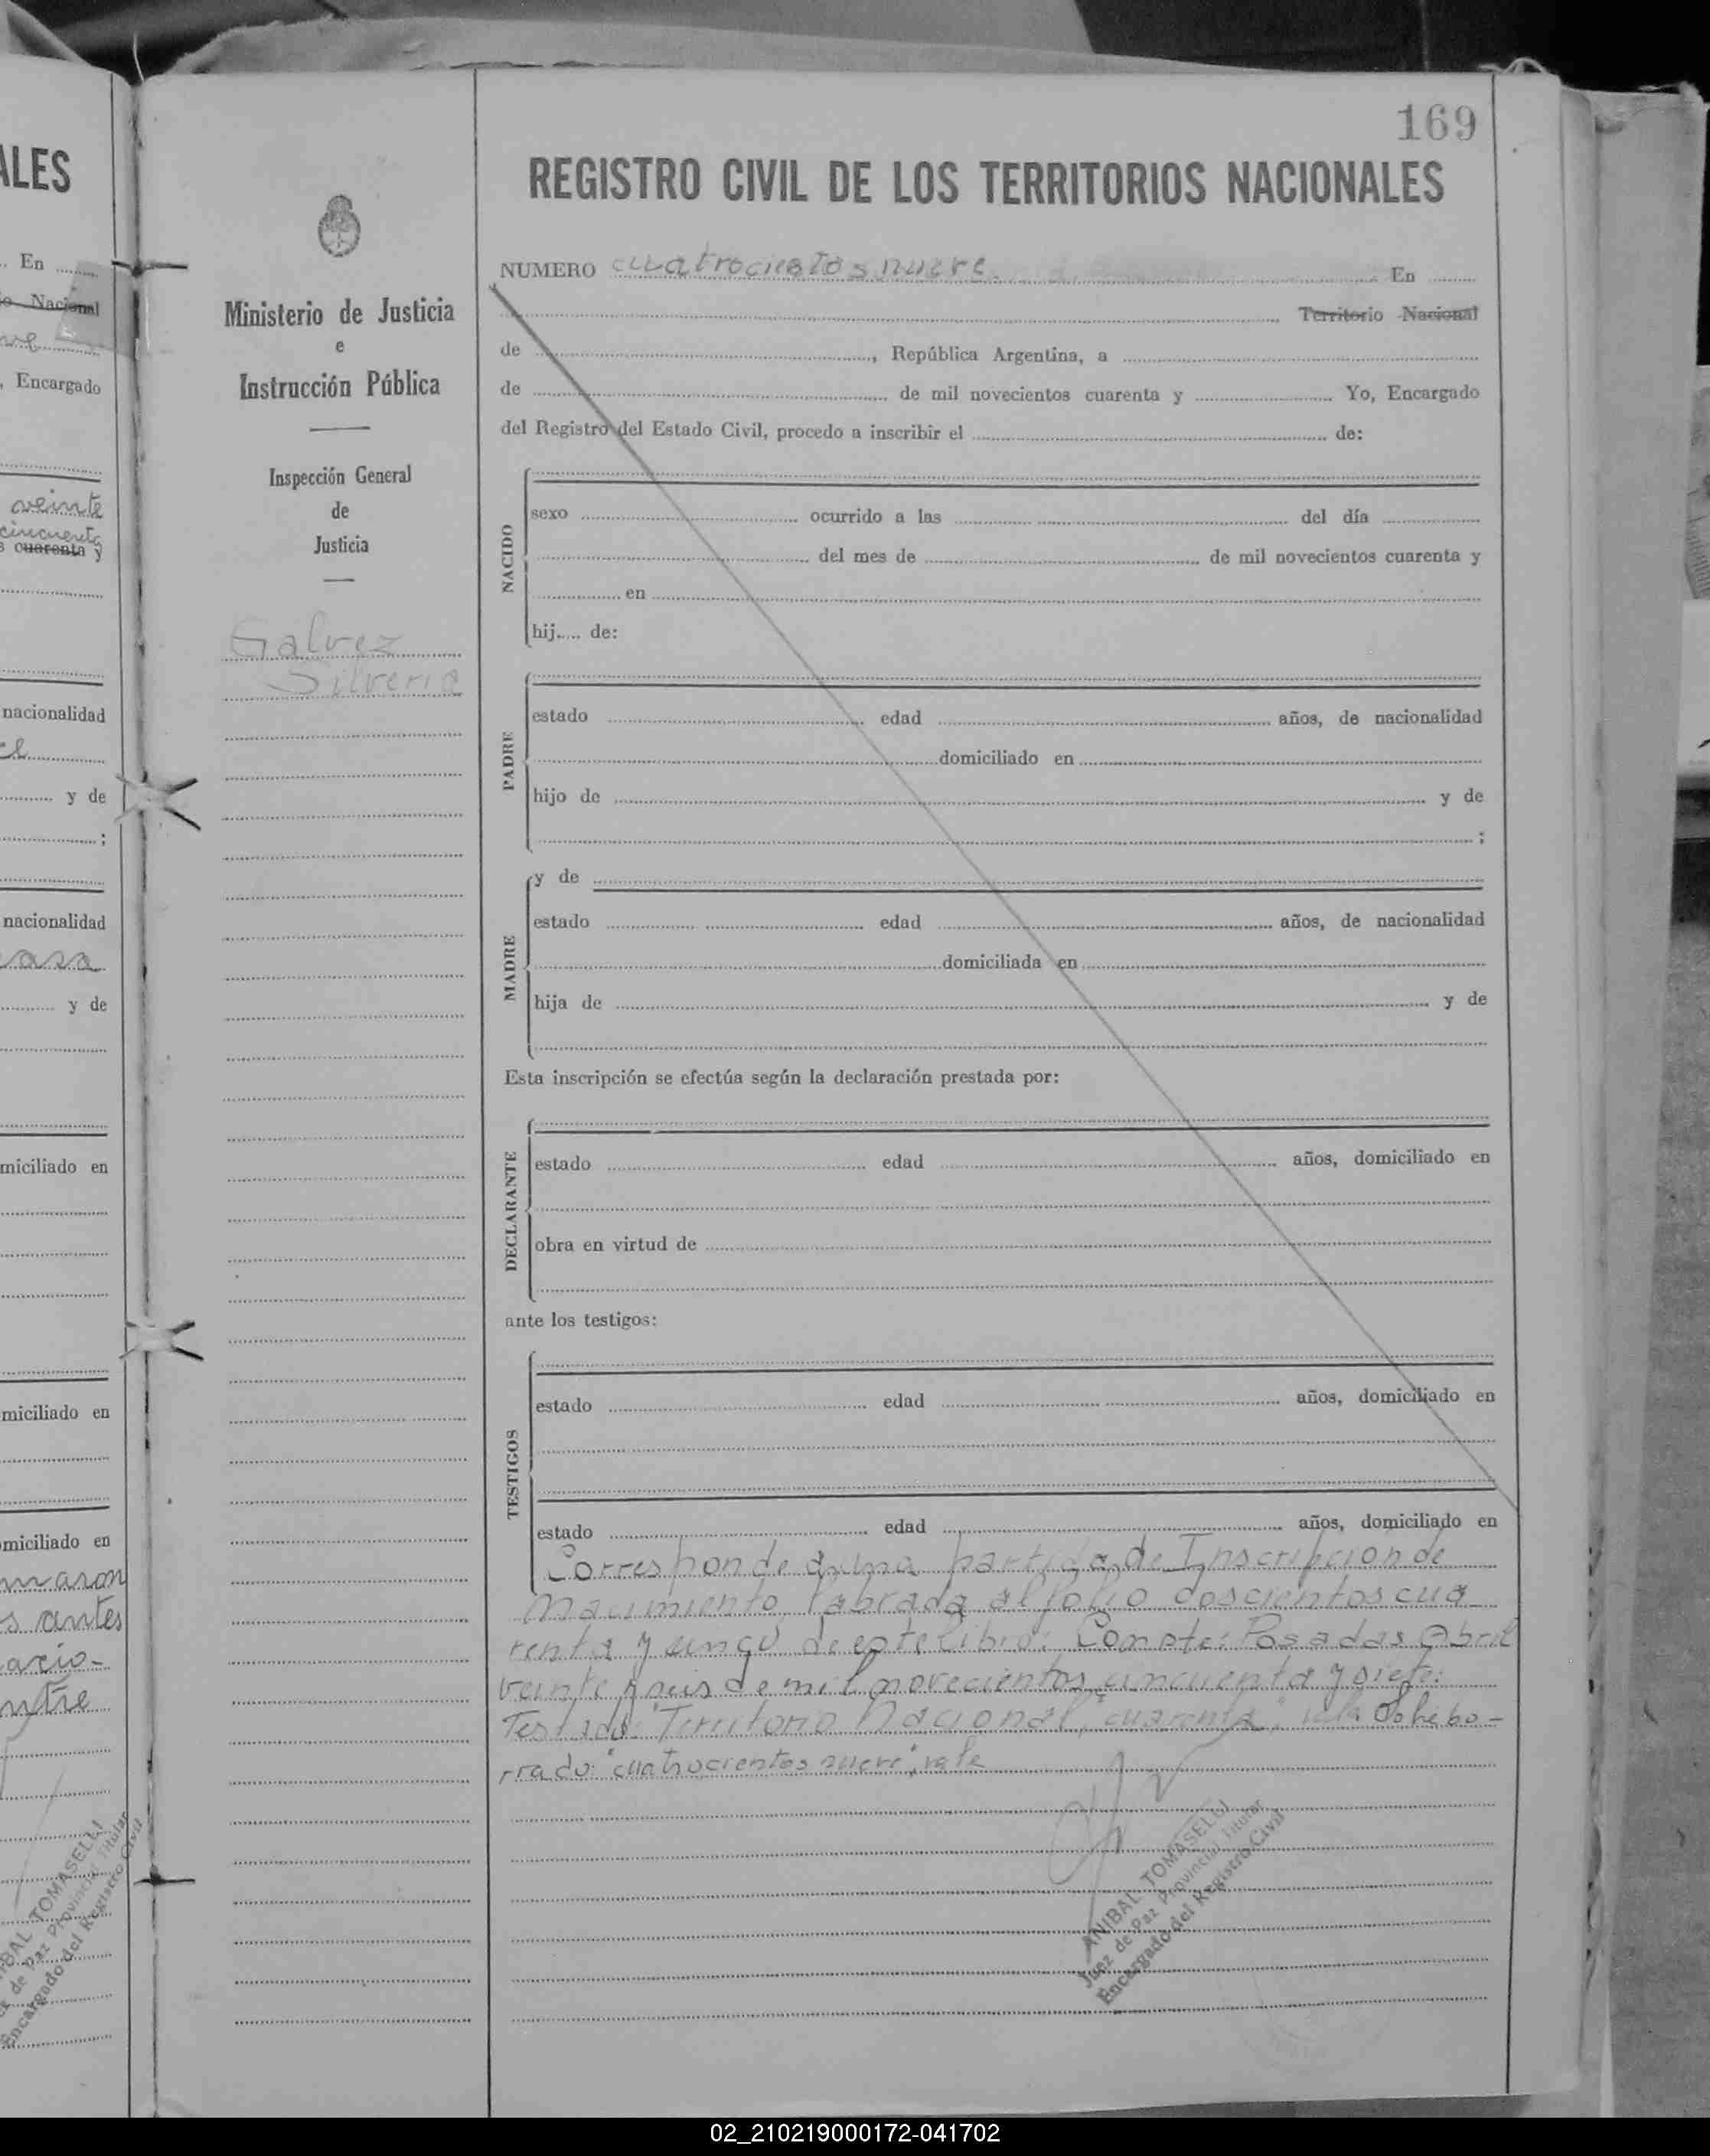 ALES
En
Nacional
Encargado
veinte
cincuenta
cuarenta y
nacionalidad
y de
;
nacionalidad
casa
y de
miciliado en
miciliado en
miciliado en
maron
s antes
acio-
ntre
BAL TOMASELLI
z de Paz Provincial Titular
Encargado del Registro Civil
Ministerio de Justicia
e
Instrucción Pública
Inspección General
de
Justicia
Galvez
Silverio
169
REGISTRO CIVIL DE LOS TERRITORIOS NACIONALES
NUMERO cuatrocientos nueve. En
Territorio Nacional
de , República Argentina, a
de de mil novecientos cuarenta y Yo, Encargado
del Registro del Estado Civil, procedo a inscribir el de:
NACIDO
sexo ocurrido a las del día
del mes de de mil novecientos cuarenta y
en
hij..... de:
PADRE
estado edad años, de nacionalidad
domiciliado en
hijo de y de
;
MADRE
y de
estado edad años, de nacionalidad
domiciliada en
hija de y de
Esta inscripción se efectúa según la declaración prestada por:
DECLARANTE
estado edad años, domiciliado en
obra en virtud de
ante los testigos:
TESTIGOS
estado edad años, domiciliado en
estado edad años, domiciliado en
Corresponde a una partida de Inscripcion de
Nacimiento labrada al folio doscientos cua
renta y cinco de este libro: Conste: Posadas Abril
veinte y seis de mil novecientos cincuenta y siete:
Testado: "Territorio Nacional, cuarenta," vale Sobrebo-
rrado: "cuatrocientos nueve", vale
ANIBAL TOMASELLI
Juez de Paz Provincial Titular
Encargado del Registro Civil
02_210219000172-041702